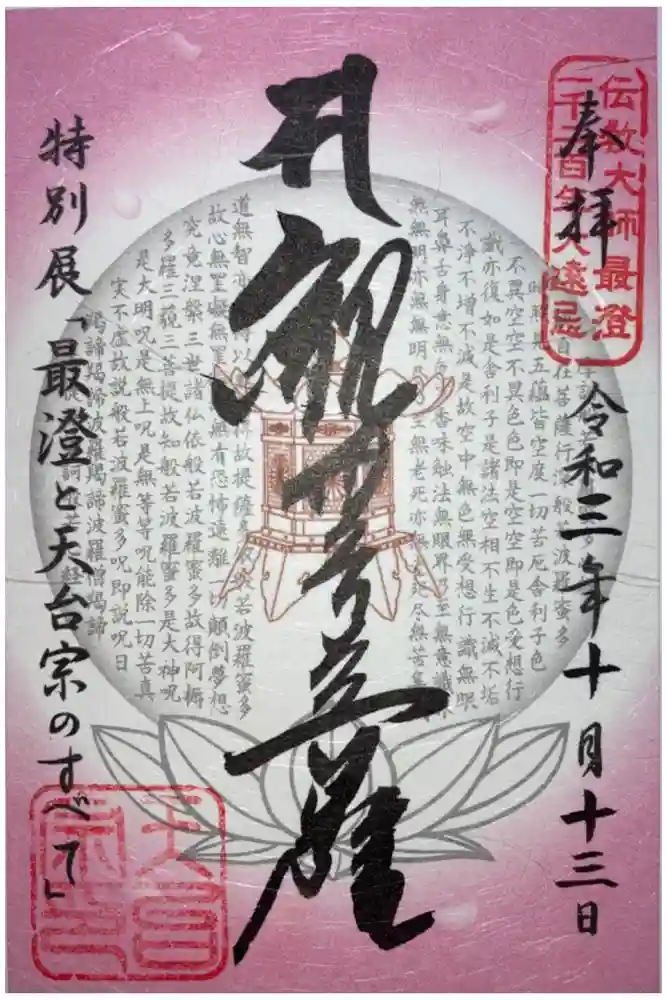 伝教大師最澄
一千二百年大遠忌
奉拝
令和三年十月十三日
自在菩薩行深般若波羅蜜多
五蘊皆空度一切苦厄舎利子色
不異空空不異色色即是空空即是色受想行
識亦復如是舎利子是諸法空相不生不滅不垢
不浄不増不減是故空中無色無受想行識無眼
耳鼻舌身意無色香味触法無眼界乃至無意識
無無明亦無無明至無老死亦無死尽無苦集
道無智亦得以故提薩般若波羅蜜多
故心無罣礙無罣無有恐怖遠離一切顛倒夢想
究竟涅槃三世諸仏依般若波羅蜜多故得阿耨
多羅三藐三菩提故知般若波羅蜜多是大神呪
是大明呪是無上呪是無等等呪能除一切苦真
実不虚故説般若波羅蜜多呪即説呪曰
羯諦羯諦波羅羯諦波羅僧羯諦
特別展「最澄と天台宗のすべて」
天台
宗印